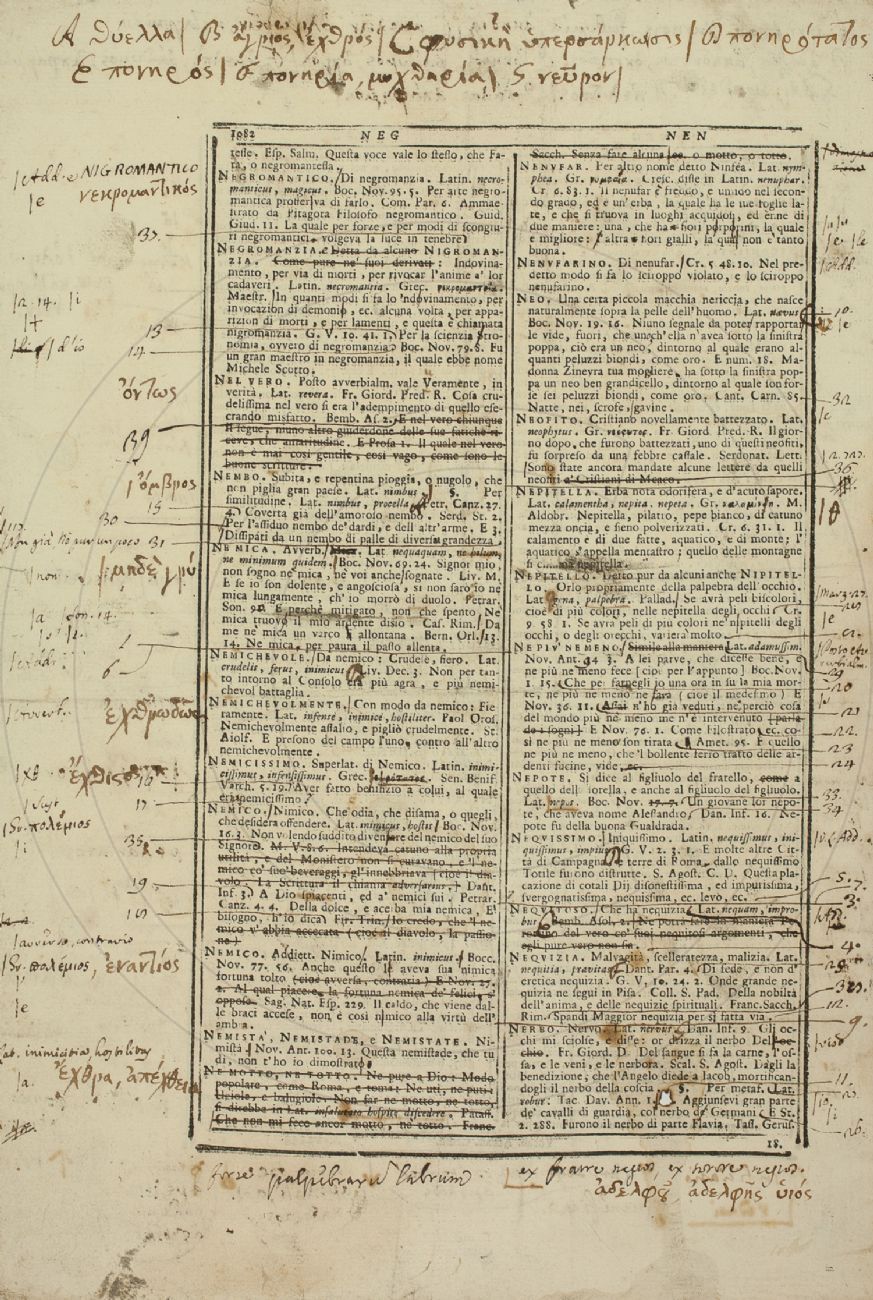 Α θύελλα / Β ἄγριος, ἐχθρός / C φυσικὴ ὑπερσάρκωσις / D πονηρότατος
E πονηρός / F πονηρία, μοχθηρία / G νεῦρον /
1082 NEG NEN
NIGROMANTICO
νεκρομαντικός
tesse. Esp. Salm. Questa voce vale lo stesso, che Fa-
ta, o negromantessa.
NEGROMANTICO. Di negromanzia. Latin. necro-
manticus, magicus. Boc. Nov. 95. 5. Per arte negro-
mantica profferiva di farlo. Com. Par. 6. Ammae-
strato da Pitagora Filosofo negromantico. Guid.
Giud. 11. La quale per forze, e per modi di scongiu-
ri negromantici volgeva la luce in tenebre
NEGROMANZIA. e Detta da alcuno NIGROMAN-
ZIA. Come pure ne' suoi derivati: Indovina-
mento, per via di morti, per rivocar l'anime a' lor
cadaveri. Latin. necromantia. Grec.
Maestr. In quanti modi si fa lo 'ndovinamento, per
invocazion di demonio, ec. alcuna volta per appa-
rizion di morti, e per lamenti, e questa è chiamata
nigromanzia. G. V. 10. 41. 1. Per la scienzia stro-
nomia, ovvero di negromanzia. Boc. Nov. 79. 8. Fu
un gran maestro in negromanzia, il quale ebbe nome
Michele Scotto.
NEL VERO. Posto avverbialm. vale Veramente, in
verità. Lat. revera. Fr. Giord. Pred. R. Cosa cru-
delissima nel vero si era l'adempimento di quello ese-
crando misfatto. Bemb. As. 2. E nel vero chiunque
il segue, niuno altro guiderdone delle sue fatiche ri-
ceve, che amaritudine. E Prosa 1. Il quale nel vero
non è mai così gentile, così vago, come sono le
buone scritture.
NEMBO. Subita, e repentina pioggia, o nugolo, che
non piglia gran paese. Lat. nimbus. §. Per
similitudine. Lat. nimbus, procella. Petr. Canz. 27.
4. Coverta già dell'amoroso nembo. Serd. St. 2.
Per l'assiduo nembo de' dardi, e dell'altr'arme. E 3.
Dissipati da un nembo di palle di diversa grandezza.
NEMICA. Avverb. Mica. Lat. nequaquam, ne hilum,
ne minimum quidem. Boc. Nov. 69. 24. Signor mio,
non sogno ne' mica, ne voi anche sognate. Liv. M.
E se io son dolente, e angosciosa, si non sarò io ne
mica lungamente, ch' io morrò di duolo. Petrar.
Son. 9. E perchè mitigato, non che spento, Ne
mica truovo il mio ardente disio. Cas. Rim. Da
me ne mica un varco s'allontana. Bern. Orl. 13.
14. Ne mica per paura il passo allenta.
NEMICHEVOLE. Da nemico: Crudele, fiero. Lat.
crudelis, ferus, inimicus. Liv. Dec. 3. Non per tan-
to intorno al Consolo era più agra, e più nemi-
chevol battaglia.
NEMICHEVOLMENTE. Con modo da nemico: Fie-
ramente. Lat. infense, inimice, hostiliter. Paol Oros.
Nemichevolmente assalio, e pigliò crudelmente. St.
Aiolf. E presono del campo l'uno contro all'altro
nemichevolmente.
NEMICISSIMO. Superlat. di Nemico. Latin. inimi-
cissimus, infensissimus. Grec. Sen. Benif.
Varch. 5. 19. Aver fatto benifizio a colui, al quale
era nemicissimo.
NEMICO. Nimico. Che odia, che disama, o quegli,
che desidera offendere. Lat. inimicus, hostis. Boc. Nov.
16. 3. Non volendo suddito divenire del nemico del suo
Signore. M. V. 8. 6. Intendeva catuno alla propria
utilità, e del Monistero non si curavano, e 'l ne-
mico co' suo' beveraggi, gl' innebbriava (cioè il dia-
volo. La Scrittura il chiama adversarius.) Dant.
Inf. 3. A Dio spiacenti, ed a' nemici sui. Petrar.
Canz. 4. 4. Della dolce, e acerba mia nemica, E'
bisogno, ch' io dica. Firr. Trin. Io credo, che 'l ne-
mico v'abbia accecata (cioè il diavolo, la passio-
ne)
NEMICO. Addiett. Nimico. Latin. inimicus. Bocc.
Nov. 77. 56. Anche questo ti aveva sua nimica
fortuna tolto (cioè avversa, contraria) E Nov. 27.
2. Al qual piacere la fortuna nemica de' felici, s'
oppose. Sag. Nat. Esp. 229. Il caldo, che viene dal-
le braci accese, non è così nimico alla virtù dell'
ambra.
NEMISTÀ, NEMISTADE, e NEMISTATE. Ni-
mistà. Nov. Ant. 100. 13. Questa nemistade, che tu
di, non t'ho io dimostrato.
NE MOTTO, NE TOTTO. Ne pure a Dio: Modo
popolare, come Roma, e toma: Ne uti, ne puti:
Cicale, e bafugiole. Non far ne motto, ne totto,
si direbbe in Lat. insalutato hospite discedere. Pataff.
Che non mi fece ancor motto, nè totto. Franc.
Sacch. Senza fare alcuna lec. o motto, o totto.
NENUFAR. Per altro nome detto Ninfea. Lat. nym-
phea. Gr. Cresc. disse in Latin. nenuphar.
Cr. 6. 83. 1. Il nenufar è freddo, e umido nel secon-
do grado, ed è un'erba, la quale ha le sue foglie la-
te, e che si truova in luoghi acquidosi, ed enne di
due maniere: una, che ha fiori porporini, la quale
è migliore: altra fiori gialli, la qual non è tanto
buona.
NENUFARINO. Di nenufar. Cr. 5. 48. 10. Nel pre-
detto modo si fa lo sciroppo violato, e lo sciroppo
nenufarino.
NEO. Una certa piccola macchia nericcia, che nasce
naturalmente sopra la pelle dell'huomo. Lat. nævus.
Boc. Nov. 19. 16. Niuno segnale da poter rapportar
le vide, fuori, che un, ch' ella n'avea sotto la sinistra
poppa, ciò era un neo, dintorno al quale erano al-
quanti peluzzi biondi, come oro. E num. 18. Ma-
donna Zinevra tua mogliere ha sotto la sinistra pop-
pa un neo ben grandicello, dintorno al quale son for-
se sei peluzzi biondi, come oro. Cant. Carn. 85.
Natte, nei, scrofe, gavine.
NEOFITO. Cristiano novellamente battezzato. Lat.
neophytus. Gr. Fr. Giord. Pred. R. Il gior-
no dopo, che furono battezzati, uno di questi neofiti,
fu sorpreso da una febbre cassale. Serdonat. Lett.
Sono state ancora mandate alcune lettere da quelli
neofiti a' Cristiani di Meaco.
NEPITELLA. Erba nota odorifera, e d'acuto sapore.
Lat. calamentha, nepita, nepeta. Gr. M.
Aldobr. Nepitella, pilatro, pepe bianco, di catuno
mezza oncia, e sieno polverizzati. Cr. 6. 31. 1. Il
calamento è di due fatte, aquatico, e di monte; l'
aquatico s'appella mentastro; quello delle montagne
si nepitella.
NEPITELLO. Detto pur da alcuni anche NIPITEL-
LO. Orlo propriamente della palpebra dell'occhio.
Lat. palpebra. Pallad. Se avrà peli biscolori,
cioè di più colori, nelle nepitella degli occhi. Cr.
9. 58. 1. Se avrà peli di più colori ne' nipitelli degli
occhi, o degli orecchi, variera molto.
NE PIV NEMENO. Simile alla maniera Lat. adamussim.
Nov. Ant. 94. 3. A lei parve, che dicesse bene, e
ne più ne meno fece [cioè per l'appunto] Boc. Nov.
1. 15. Che per fargegli io una ora in su la mia mor-
te, ne più ne meno ne farà (cioè il medesimo) E
Nov. 36. 11. Assai n'ho già veduti, ne perciò cosa
del mondo più ne meno me n'è intervenuto [parla
de' sogni] E Nov. 76. 1. Come Filostrato ec. co-
sì ne più ne meno son tirata. Amet. 95. E quello
ne più ne meno, che 'l bollente ferro tratto delle ar-
denti fucine, vide, ec.
NEPOTE. Si dice al figliuolo del fratello, come a
quello della sorella, e anche al figliuolo del figliuolo.
Lat. nepos. Boc. Nov. 17. 7. Un giovane lor nepo-
te, che aveva nome Alessandro. Dan. Inf. 16. Ne-
pote fu della buona Gualdrada.
NEQUISSIMO. Iniquissimo. Latin. nequissimus, ini-
quissimus, impius. G. V. 2. 3. 1. E molte altre Cit-
tà di Campagna, e terre di Roma dallo nequissimo
Totile furono distrutte. S. Agost. C. D. Questa pla-
cazione di cotali Dij disonestissima, ed impurissima,
svergognatissima, nequissima, ec. levò, ec.
NEQUITOSO. Che ha nequizia. Lat. nequam, impro-
bus. Bemb. Asol. 2. Ne potrà alcun in maniera Pe-
rottino del vero co' suoi nequitosi argomenti, che
egli pure vero non sia.
NEQUIZIA. Malvagità, scelleratezza, malizia. Lat.
nequitia, pravitas. Dant. Par. 4. Di fede, e non d'
eretica nequizia. G. V. 10. 24. 2. Onde grande ne-
quizia ne seguì in Pisa. Coll. S. Pad. Della nobiltà
dell'anima, e delle nequizie spirituali. Franc. Sacch.
Rim. Spandi Maggior nequizia per si fatta via.
NERBO. Nervo. Lat. nervus. Dan. Inf. 9. Gli oc-
chi mi sciolse, e disse: or drizza il nerbo Del
chio. Fr. Giord. D. Del sangue si fa la carne, l'os-
sa, e le veni, e le nerbora. Scal. S. Agost. Dagli la
benedizione, che l'Angelo diede a Jacob, mortifican-
dogli il nerbo della coscia. §. Per metaf. Lat.
robur. Tac. Dav. Ann. 1. Aggiunsevi gran parte
de' cavalli di guardia, col nerbo de' Germani. E St.
2. 288. Furono il nerbo di parte Flavia. Tass. Gerus.
18.
37.
13
14
ὄντως
39
ὄμβρος
15
30
31
μηδὲ γρύ
1
6
ἐχθρωδῶς
16
17
πολέμιος
35
19
πολέμιος, ἐναντίος
Lat. inimicitia, hostilitas
ἔχθρα, ἀπέχθεια
10.
32
36
20
21
22.
23
24
33.
34
5.
7.
3.
4.
12.
9.
11.
26.
forte palpebrarum labrum
ex fratre nepos, ex sorore nepos.
ἀδελφοῦ, ἀδελφῆς υἱός